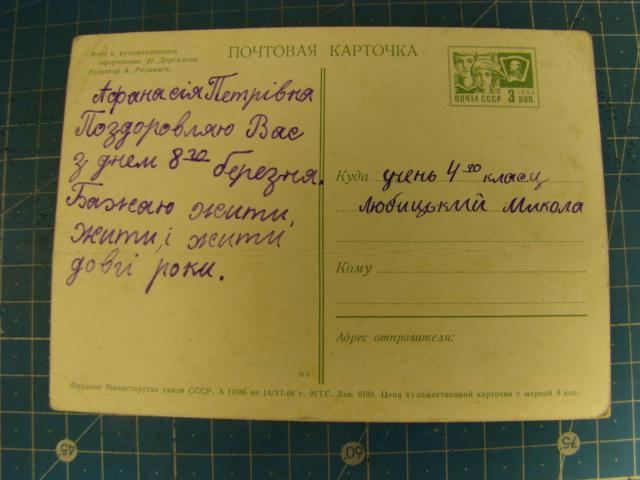 Фото и художественное
оформление И. Дергилева.
Редактор А. Рязанцев.
ПОЧТОВАЯ КАРТОЧКА
ПОЧТА СССР 3 КОП.
Афанасія Петрівна
Поздоровляю Вас
з днем 8го березня.
Бажаю жити,
жити, і жити
довгі роки.
Куда учень 4го класу
Любицький Микола
Кому
Адрес отправителя:
Издание Министерства связи СССР. А 11086 от 14/XI-68 г. МТГ. Зак. 8189. Цена художественной карточки с маркой 4 коп.
45
60
75